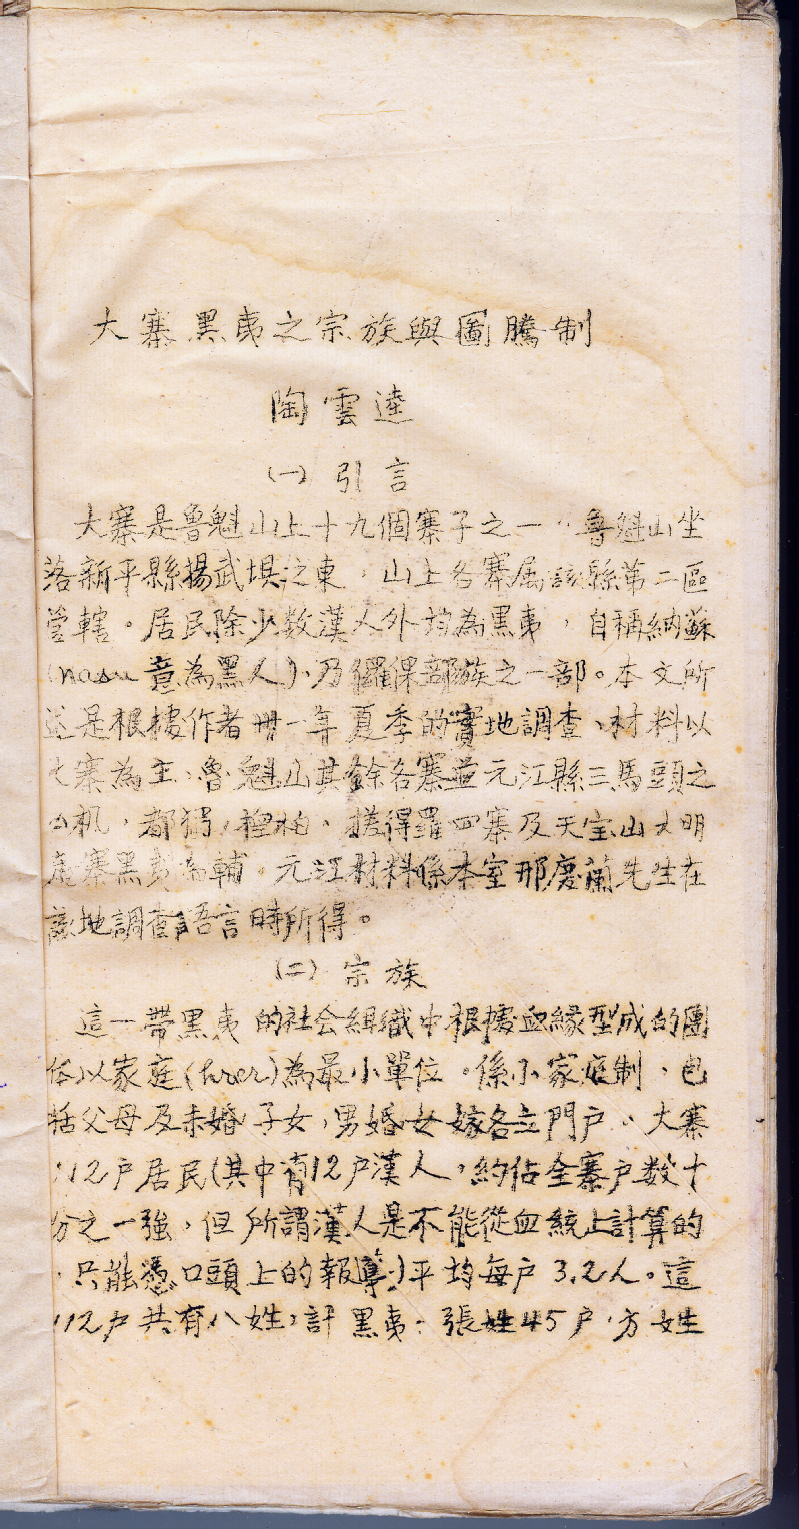 大寨黑夷之宗族與圖騰制
陶雲逵
(一) 引言
大寨是魯魁山上十九個寨子之一，魯魁山坐
落新平縣揚武壩之東，山上各寨屬該縣第二區
管轄。居民除少数漢人外均為黑夷，自稱納蘇
(nasu 意為黑人)、乃儸倮部族之一部。本文所
述是根據作者卅一年夏季的實地調查、材料以
大寨為主、魯魁山其餘各寨並元江縣三馬頭之
机，都猾，檉柏，搓得羅四寨及天宝山大明
庵寨黑夷為輔。元江材料係本室邢慶蘭先生在
該地調查語言時所得。
(二) 宗族
這一帶黑夷的社会組織中根據血緣型成的團
体以家庭()為最小單位。係小家庭制，包
括父母及未婚子女，男婚女嫁各立門户。大寨
112户居民(其中有12户漢人，約佔全寨户数十
分之一強，但所謂漢人是不能從血統上計算的
，只能憑口頭上的報導)平均每户3.2人。這
112户共有八姓，計黑夷：張姓45户，方姓